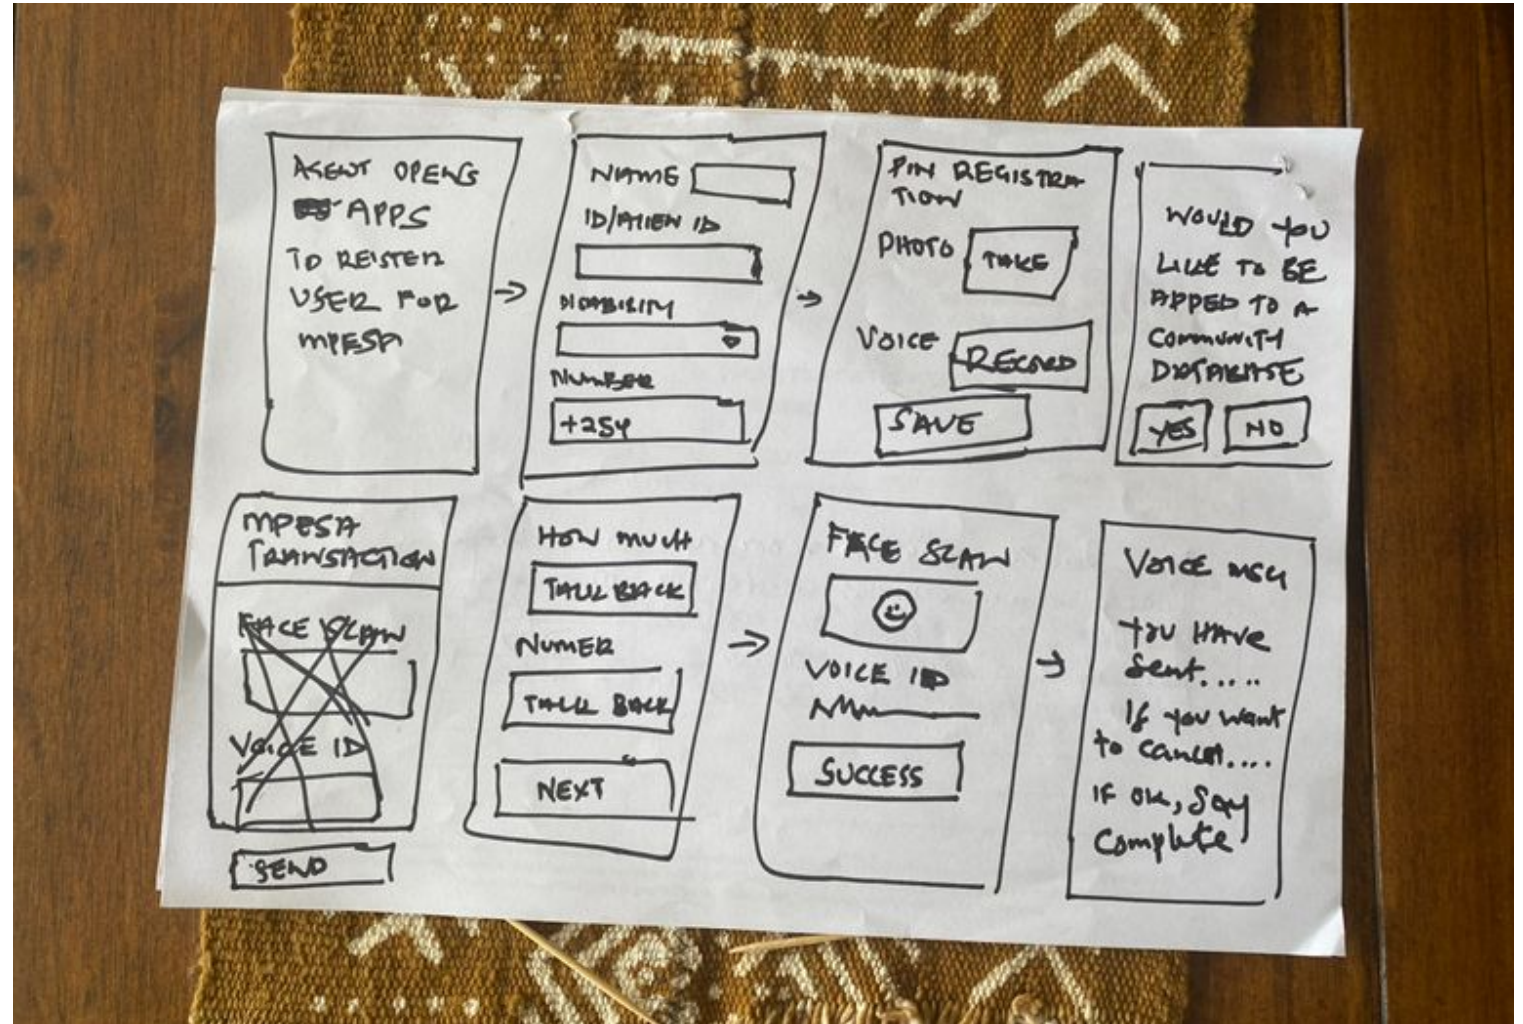 AGENT OPENS
APPS
TO REISTER
USER FOR
MPESA
NAME
ID/ALIEN ID
DISABILITY
NUMBER
+254
PIN REGISTRA
TION
PHOTO TAKE
VOICE RECORD
SAVE
WOULD YOU
LIKE TO BE
ADDED TO A
COMMUNITY
DATABASE
YES NO
MPESA
TRANSACTION
FACE SCAN
VOICE ID
SEND
HOW MUCH
TALK BACK
NUMER
TALK BACK
NEXT
FACE SCAN
VOICE ID
SUCCESS
VOICE MSG
YOU HAVE
Sent.....
If you want
to cancel....
IF OK, Say
Complete